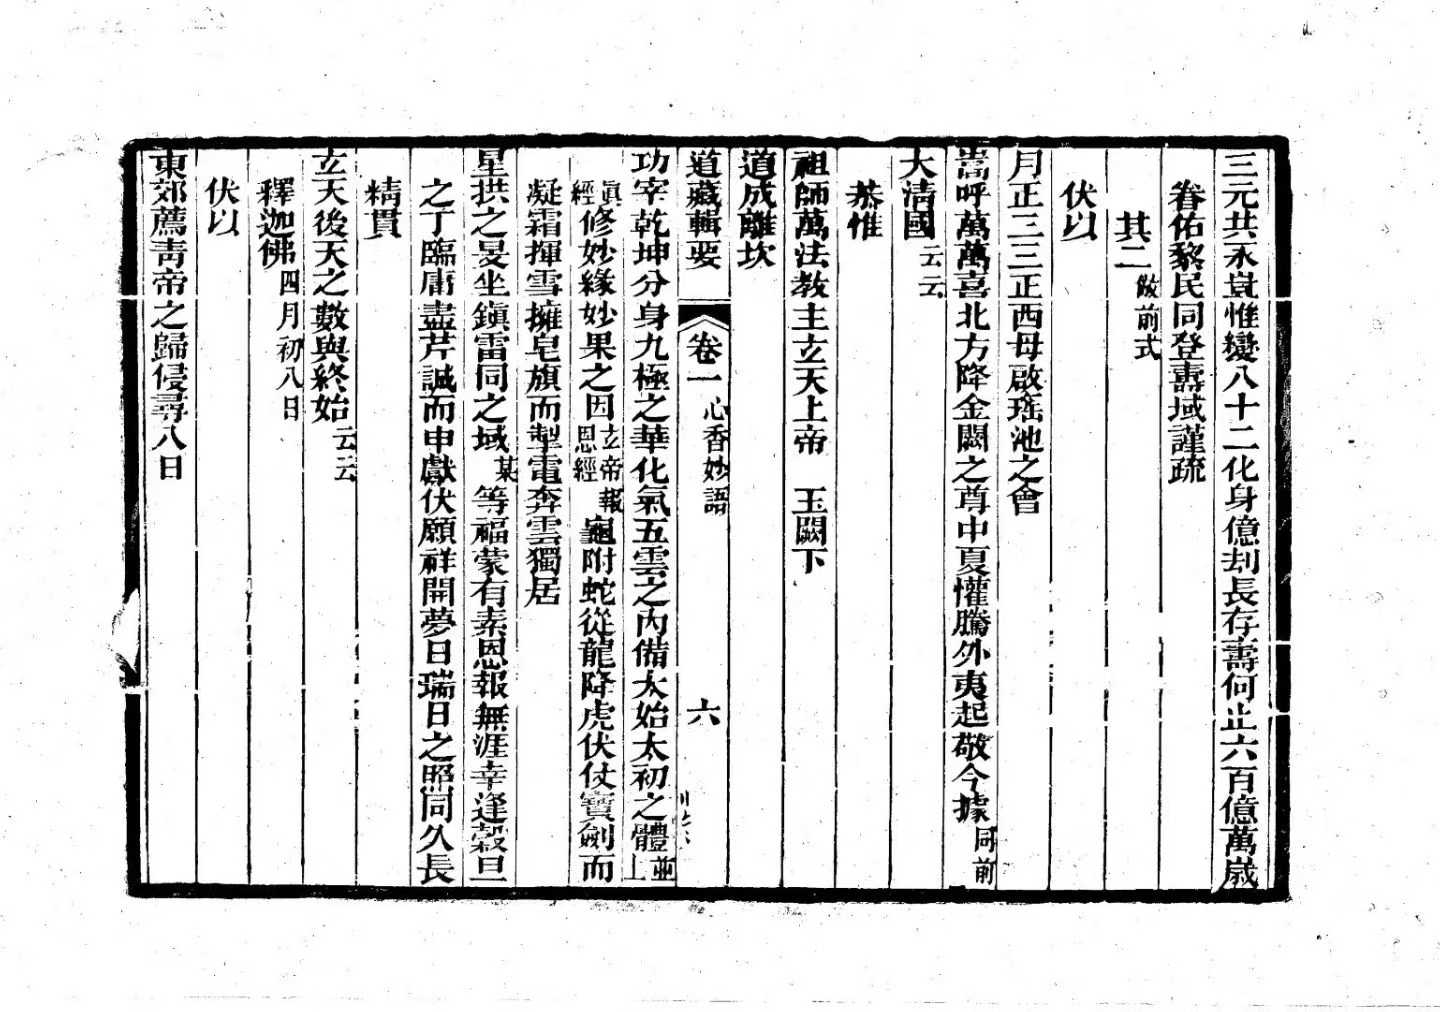 三元共永豈惟變八十二化身億刦長存壽何止六百億萬歲
眷佑黎民同登壽域謹疏
其二倣前式
伏以
月正三三正西母啟瑤池之會
嵩呼萬萬喜北方降金闕之尊中夏懽騰外夷起敬今據同前
大清國云云
恭惟
祖師萬法教主玄天上帝 玉闕下
道成離坎
道藏輯要 卷一 心香妙語 六
功宰乾坤分身九極之華化氣五雲之內備太始太初之體並上
眞經修妙緣妙果之因玄帝報恩經龜附蛇從龍降虎伏仗寶劍而
凝霜揮雪擁皂旗而掣電奔雲獨居
星拱之旻坐鎭雷同之域某等福蒙有素恩報無涯幸逢穀旦
之丁臨庸盡芹誠而申獻伏願祥開夢日瑞日之照同久長
精貫
玄天後天之數與終始云云
釋迦佛四月初八日
伏以
東郊薦靑帝之歸侵尋八日